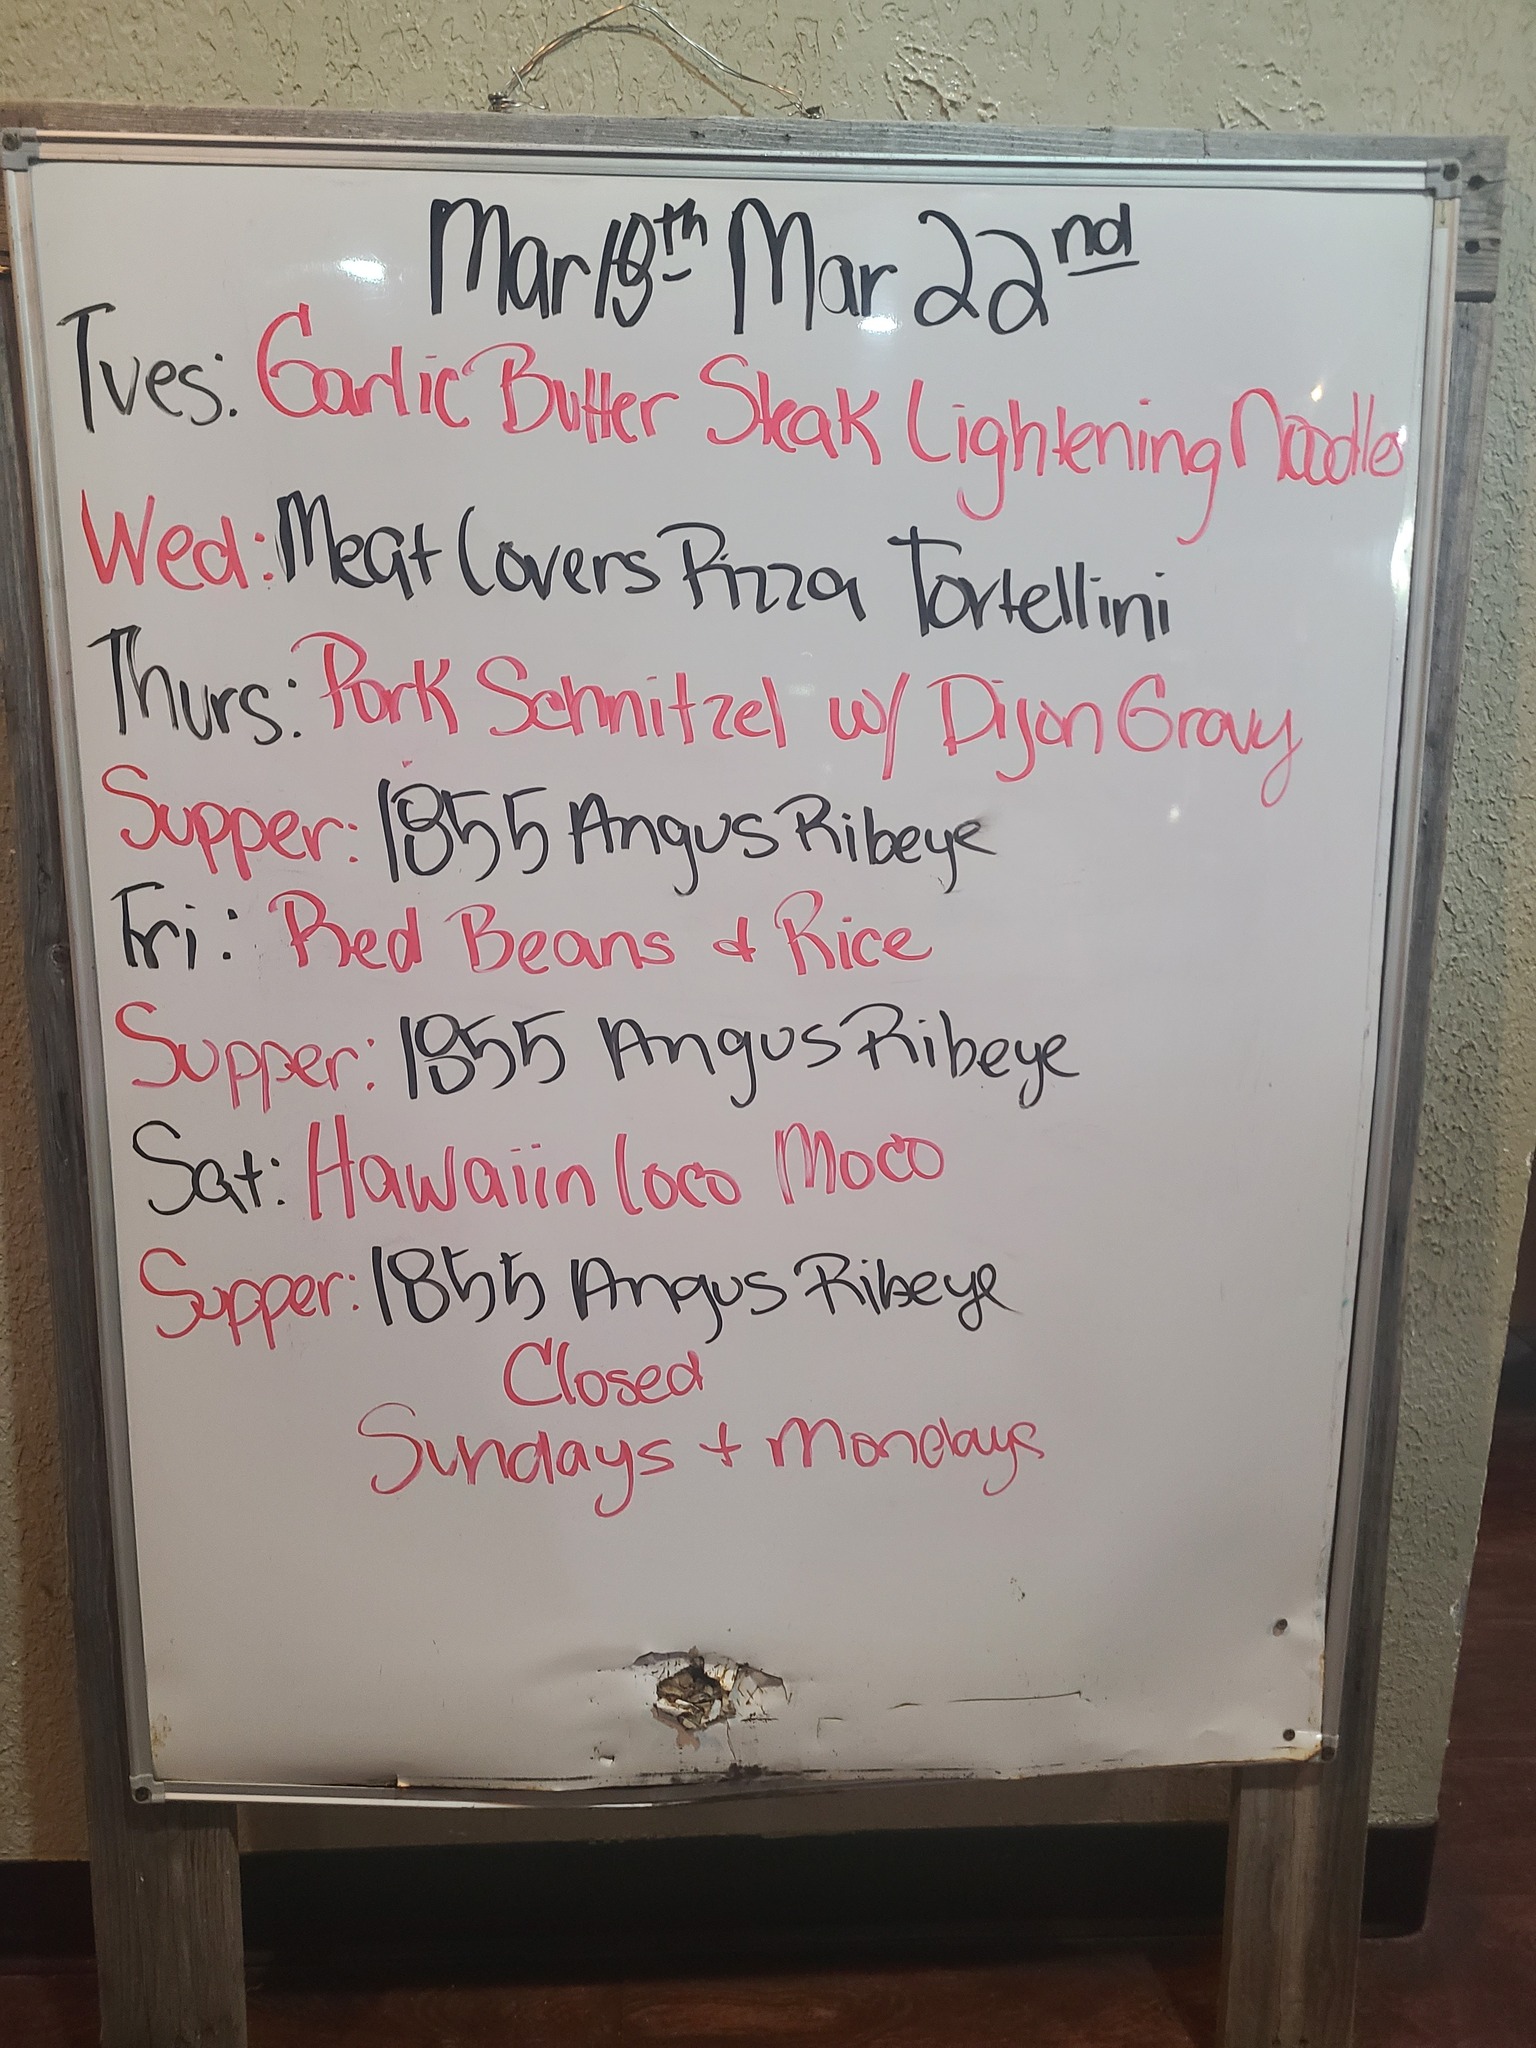 Mar 18th Mar 22nd
Tues: Garlic Butter Steak Lightening Noodles
Wed: Meat Lovers Pizza Tortellini
Thurs: Pork Schnitzel w/ Dijon Gravy
Supper: 1855 Angus Ribeye
Fri: Red Beans & Rice
Supper: 1855 Angus Ribeye
Sat: Hawaiin Loco Moco
Supper: 1855 Angus Ribeye
Closed
Sundays + Mondays